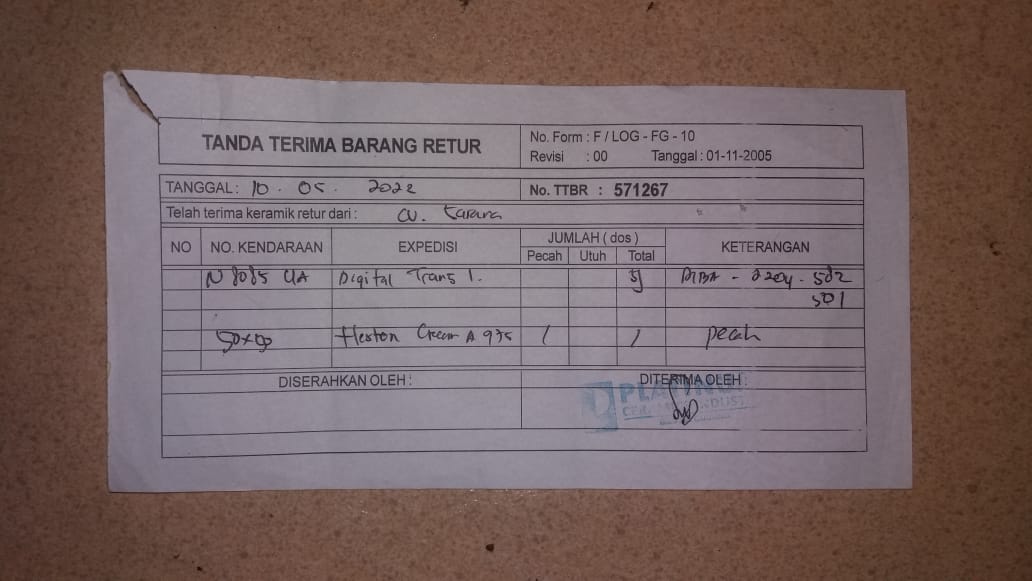 TANDA TERIMA BARANG RETUR
No. Form : F / LOG - FG - 10
Revisi : 00 Tanggal : 01-11-2005
TANGGAL : 10 . 05 . 2022
No. TTBR : 571267
Telah terima keramik retur dari : CV. Karana
NO NO. KENDARAAN EXPEDISI JUMLAH ( dos ) KETERANGAN
Pecah Utuh Total
N 8085 UA Digital Trans 1.
50x50 Heston Cream A 975 1 1 pecah
DISERAHKAN OLEH : DITERIMA OLEH :